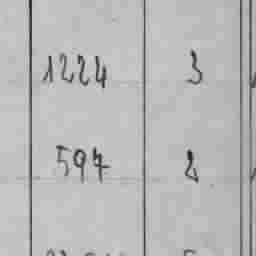 1224 3
597 2